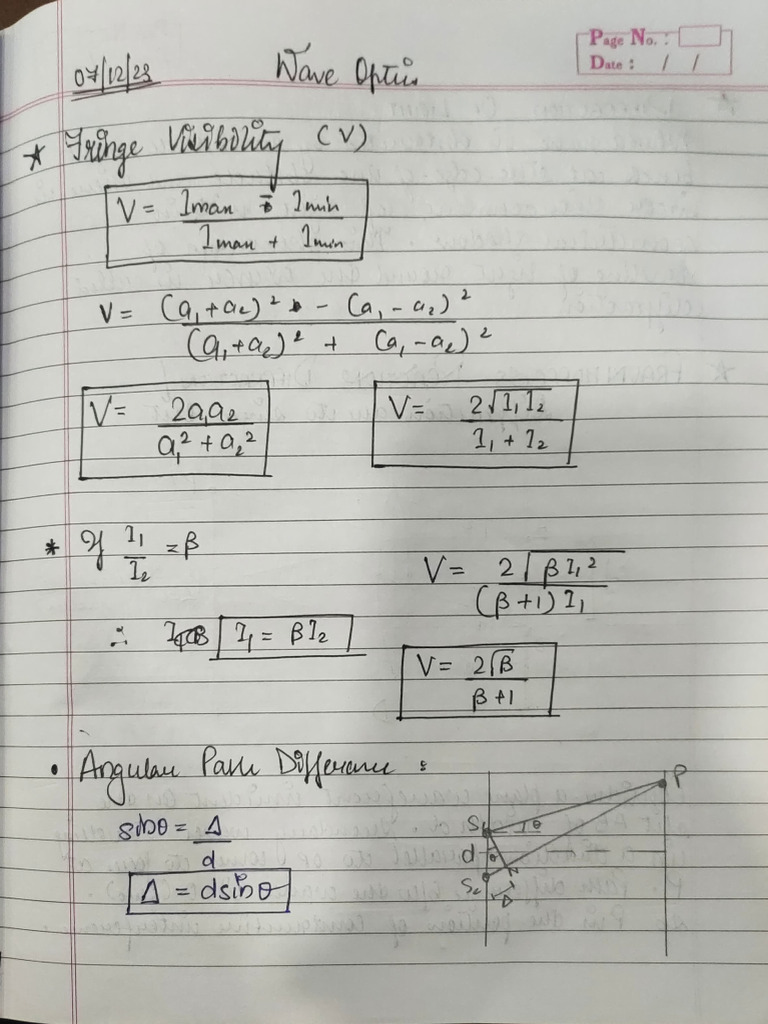 Page No. :
Date : / /
07/12/23 Wave Optics
* Fringe Visibility (V)
V = Imax - Imin / Imax + Imin
V = (a₁+a₂)² - (a₁-a₂)² / (a₁+a₂)² + (a₁-a₂)²
V = 2a₁a₂ / a₁² + a₂² V = 2√I₁I₂ / I₁ + I₂
* If I₁/I₂ = β
V = 2√βI₁² / (β+1) I₁
∴ I₁ = βI₂
V = 2√β / β+1
• Angular Path Difference :
P
sinθ = Δ/d
S₁ θ
d θ
Δ = dsinθ
S₂ Δ